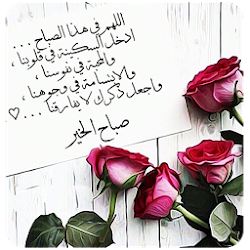 اللهم في هذا الصباح ...
ادخل السكينة في قلوبنا ،
والمحبة في نفوسنا ،
والابتسامة في وجوهنا ،
واجعل ذكرك لا يفارقنا ...
صباح الخير